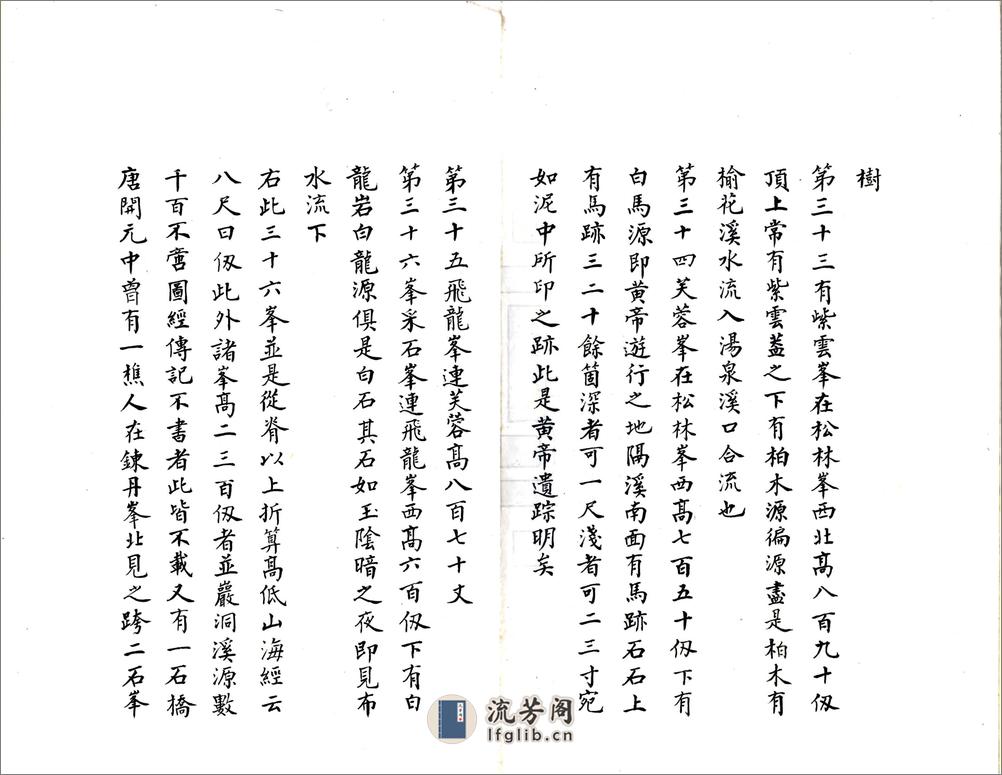 樹
第三十三有紫雲峯在松林峯西北高八百九十仭
頂上常有紫雲蓋之下有柏木源徧源盡是柏木有
榆花溪水流入湯泉溪口合流也
第三十四芙蓉峯在松林峯西高七百五十仭下有
白馬源即黄帝遊行之地隔溪南面有馬跡石石上
有馬跡三二十餘箇深者可一尺淺者可二三寸宛
如泥中所印之跡此是黄帝遺踪明矣
第三十五飛龍峯連芙蓉高八百七十丈
第三十六峯采石峯連飛龍峯西高六百仭下有白
龍岩白龍源俱是白石其石如玉陰暗之夜即見布
水流下
右此三十六峯並是從脊以上折算高低山海經云
八尺曰仭此外諸峯高二三百仭者並巖洞溪源數
千百不啻圖經傳記不書者此皆不載又有一石橋
唐開元中曾有一樵人在鍊丹峯北見之跨二石峯
流芳阁
lfglib.cn